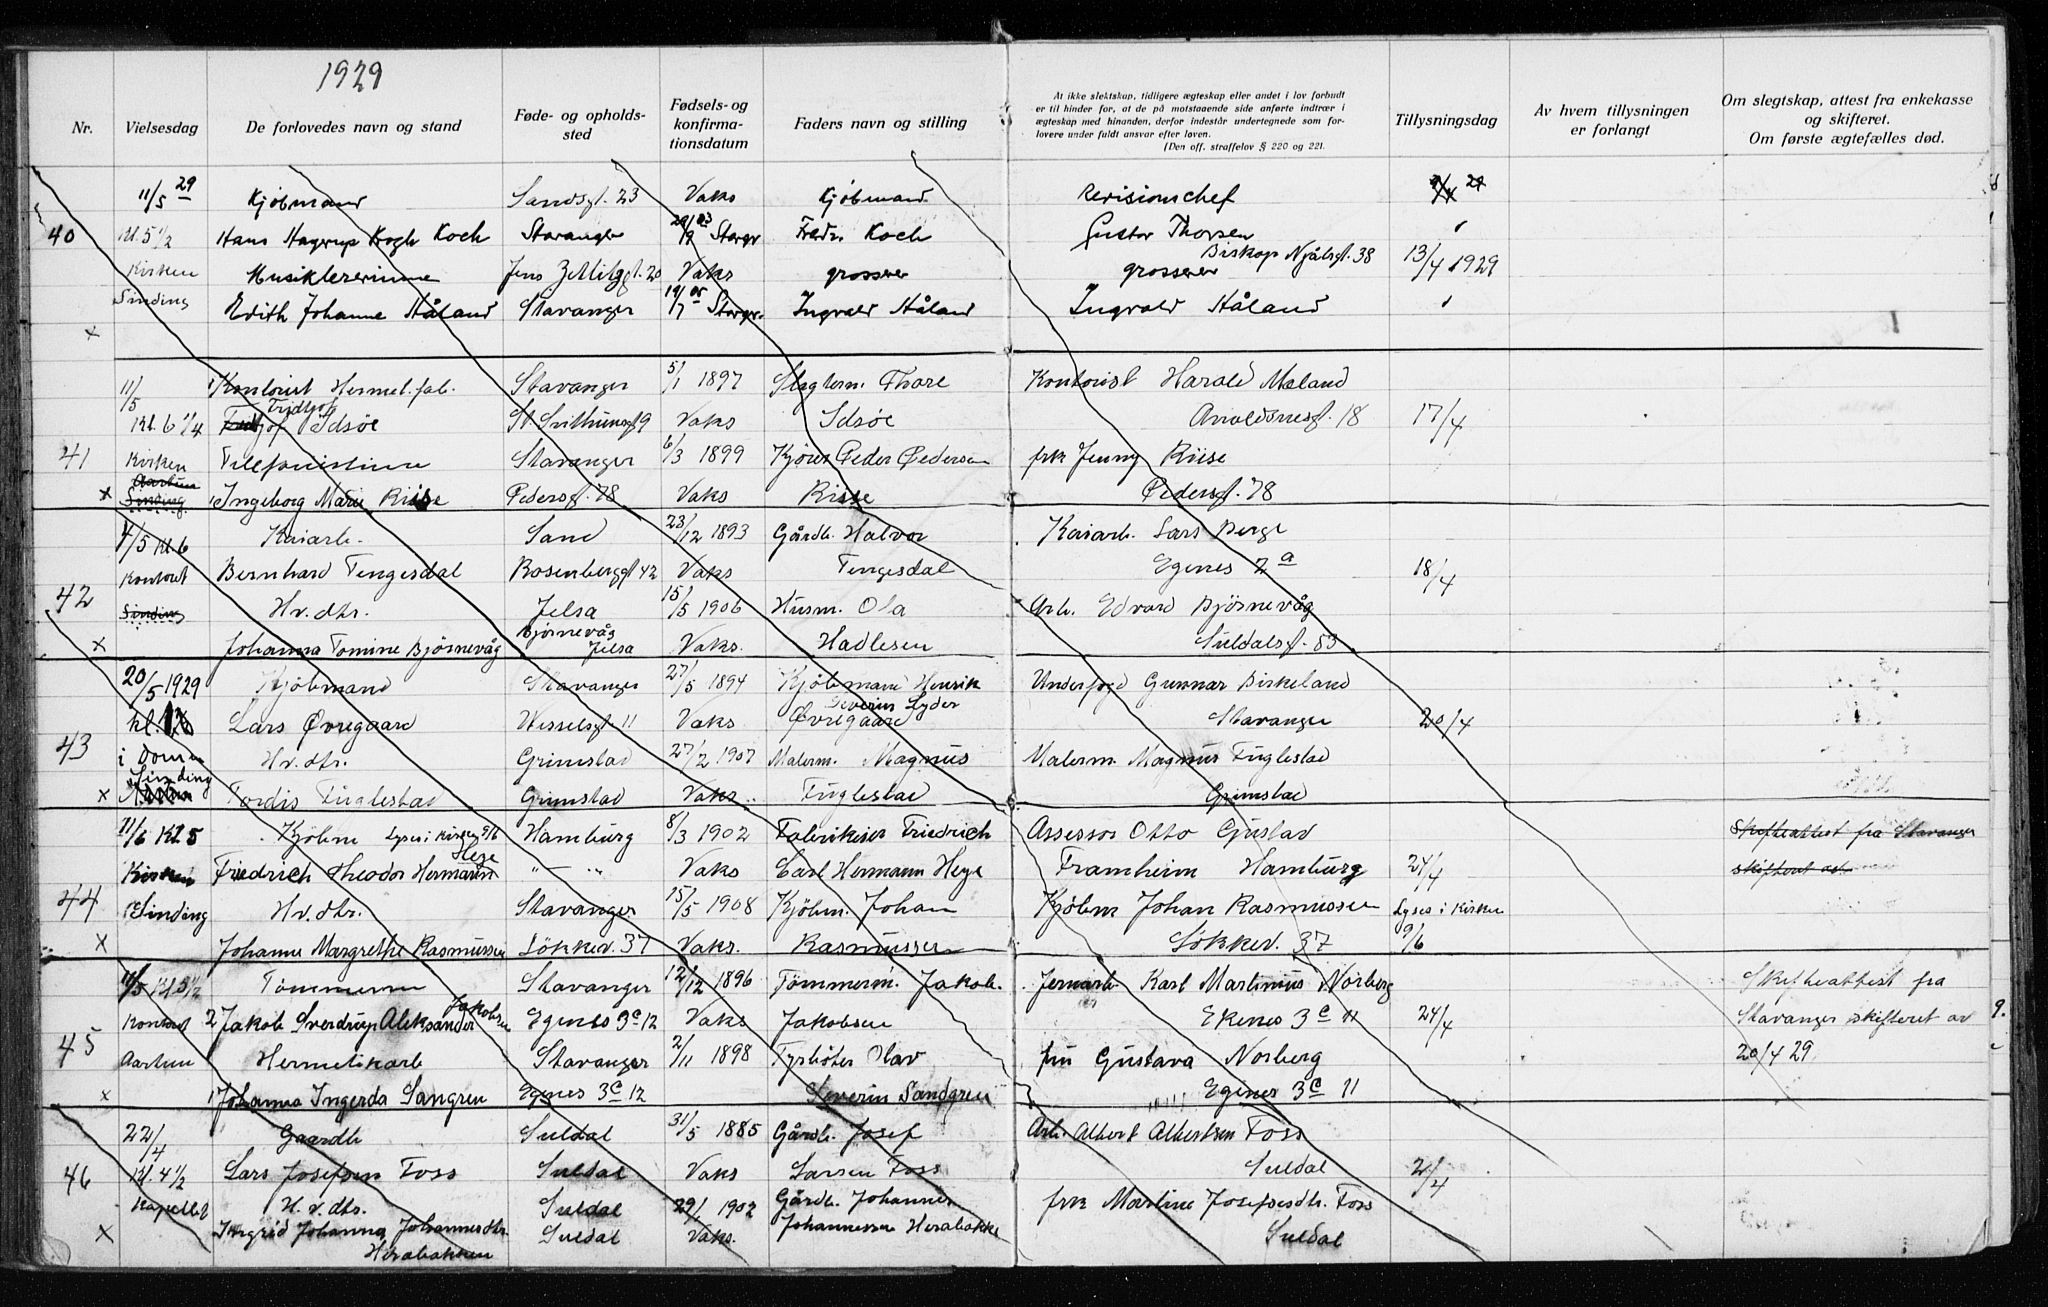 1929
Nr. Vielsesdag De forlovedes navn og stand Føde- og opholds-sted Fødsels- og konfirma-tionsdatum Faders navn og stilling
At ikke slektskap, tidligere ægteskap eller andet i lov forbudt
er til hinder for, at de på motstaaende side anførte indtrær i
ægteskap med hinanden, derfor indestår undertegnede som for-
lovere under fuldt ansvar efter loven.
(Den off. straffelov § 220 og 221.
Tillysningsdag Av hvem tillysningen er forlangt Om slegtskap, attest fra enkekasse og skifteret. Om første ægtefælles død.
11/5 29 Kjøbmand Sandsgt. 23 Vaks Kjøbmand Revisionschef
40 Kl. 5 1/2 Hans Hagerup Krogh Koch Stavanger Stavgr Fredr. Koch Gustav Thorsen
Biskop Njålsgt. 38 13/4 1929
Kirken Musiklærerinne Jens Zetlitzgt. 20 Vaks grosserer grosserer
Sinding Edith Johanne Håland Stavanger Stavgr. Ingvald Håland Ingvald Håland
x
11/5 Kontorist Hermet.fab. Stavanger 5/1 1897 Slagterm. Thore Kontorist Harald Meland
Kl. 6 1/4 Fridtjof Idsøe St. Svithunsgt 9 Vaks Idsøe Arnoldsnesgt. 18 17/4
41 Kirken Telefonistinne Stavanger 6/3 1899 Kjører Peder Pedersen frk Jenny Riise
Aarhun
x Sinding Ingeborg Marie Riise Pedersgt. 78 Vaks Riise Pedersgt. 78
4/5 kl 6 Kaiarb. Sand 23/12 1893 Gårdb. Halvor Kaiarb. Lars Berge
Kontoret Bernhard Tengesdal Rosenberggt 42 Vaks Tengesdal Egenes 2 a 18/4
42 Sinding Hv. dtr. Jelsa 15/5 1906 Husm. Ola Arb. Edvard Bjørnevåg
x Johanna Tomine Bjørnevåg Bjørnevåg Jelsa Vaks. Hadlesen Suldalsgt. 83
20/5 1929 Kjøbmand Stavanger 27/5 1894 Kjøbmand Henrik Underfogd Gunnar Birkeland
Severin Lyder
kl. Lars Øvregaard Wesselsgt 11 Vaks Øvregaard Stavanger 20/4
43 i Domen Hv. dtr. Grimstad 27/2 1907 Malerm. Magnus Malerm. Magnus Fuglestad
Sinding
x Tordis Fuglestad Grimstad Vaks Fuglestad Grimstad
11/6 Kl 5 Kjøbm Lyses i kirken 9/6 Hamburg 8/3 1902 Fabrikeier Friedrich Assessor Otto Gustav Skifteattest fra Stavanger
Kirken Friedrich Theodor Hermann Heye — " — Vaks Carl Hermann Heye Framheim Hamburg 24/4 skifteret av
44 Sinding Hv. dtr. Stavanger 15/5 1908 Kjøbm. Johan Kjøbm Johan Rasmussen Lyses i Kirken
x Johanne Margrethe Rasmussen Løkkev. 37 Vaks. Rasmussen Løkkev. 37 9/6
11/5 Kl. 5 1/2 Tømmerm Stavanger 12/12 1896 Tømmerm. Jakob. Jernarb. Karl Martinius Norberg Skifteattest fra
Kontoret 2 Jakob Sverdrup Aleksander Jakobsen Egenes 3 c 12 Vaks Jakobsen Ekenes 3 c 11 24/4 Stavanger skifteret av
45 Aarhun Hermetikarb Stavanger 2/11 1898 Fyrbøter Olav fru Gustava Norberg 20/4 29
x 1 Johanna Ingerda Sangren Egenes 3 c 12 Severin Sandgren Egenes 3 c 11
22/4 Gaardb Suldal 31/5 1885 Gårdb. Josef Arb. Albert Albertsen Foss
46 Kl. 4 1/2 Lars Josefsen Foss Suldal Vaks Larsen Foss Suldal 2/4
Kapellet H. v. dtr. Suldal 29/1 1902 Gårdb. Johannes frk Martine Josefsesdtr. Foss
x Ingrid Johanna Johannesdtr. Herabakken Suldal Vaks. Johannessen Herabakke Suldal